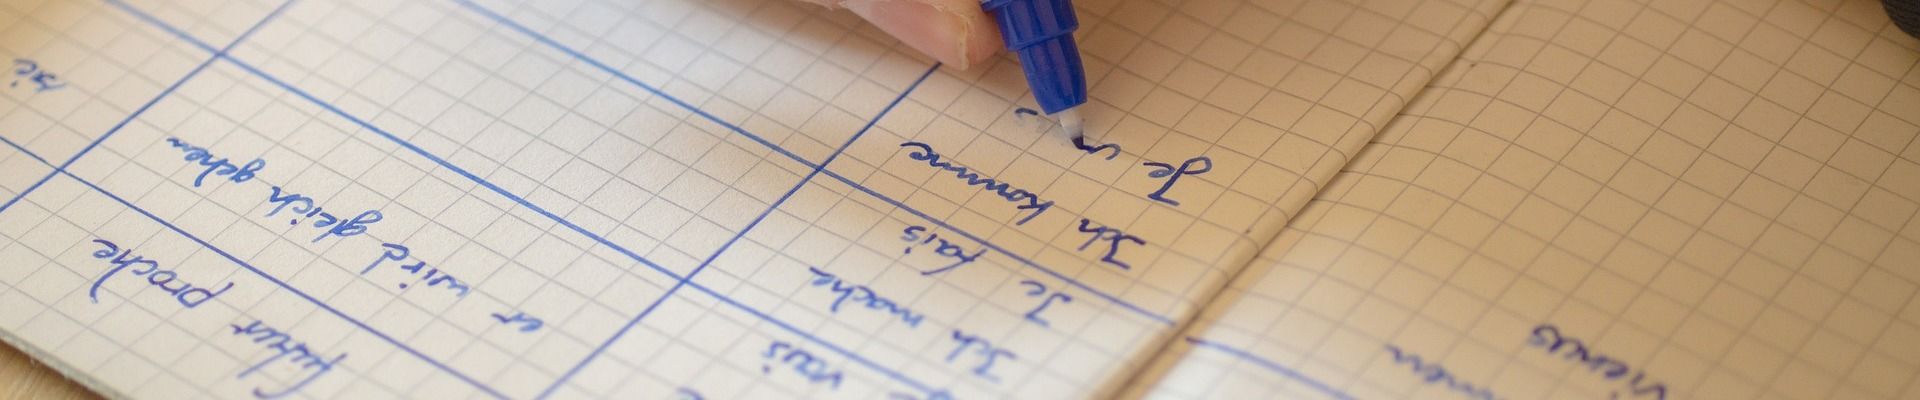 viens
vais
Ich mache
Je fais
Ich komme
Je v
futur proche
er wird gleich gehen